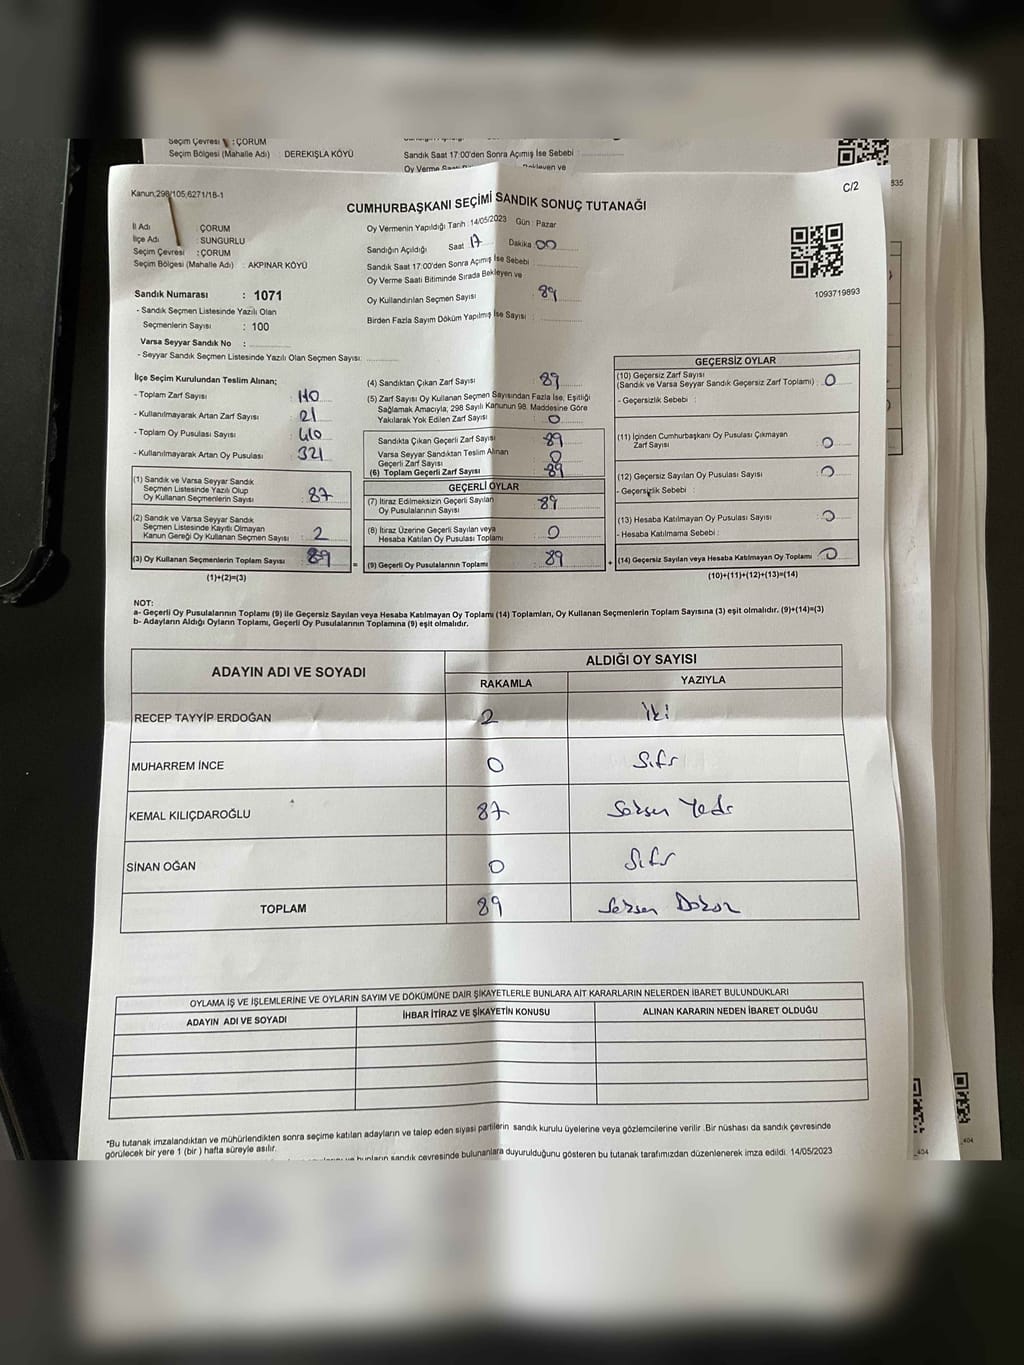 Seçim Çevresi : ÇORUM
Seçim Bölgesi (Mahalle Adı) : DEREKIŞLA KÖYÜ
Sandık Saat 17:00'den Sonra Açımış İse Sebebi :
835
Kanun;298/105;6271/18-1
C/2
CUMHURBAŞKANI SEÇİMİ SANDIK SONUÇ TUTANAĞI
İl Adı : ÇORUM
İlçe Adı : SUNGURLU
Seçim Çevresi : ÇORUM
Seçim Bölgesi (Mahalle Adı) : AKPINAR KÖYÜ
Oy Vermenin Yapıldığı Tarih : 14/05/2023 Gün : Pazar
Sandığın Açıldığı Saat 17 Dakika 00
Sandık Saat 17:00'den Sonra Açımış İse Sebebi
Oy Verme Saati Bitiminde Sırada Bekleyen ve
Oy Kullandırılan Seçmen Sayısı : 89
Birden Fazla Sayım Döküm Yapılmış İse Sayısı :
1093719893
Sandık Numarası : 1071
- Sandık Seçmen Listesinde Yazılı Olan
Seçmenlerin Sayısı : 100
Varsa Seyyar Sandık No :
- Seyyar Sandık Seçmen Listesinde Yazılı Olan Seçmen Sayısı:
İlçe Seçim Kurulundan Teslim Alınan;
- Toplam Zarf Sayısı : 110
- Kullanılmayarak Artan Zarf Sayısı : 21
- Toplam Oy Pusulası Sayısı : 410
- Kullanılmayarak Artan Oy Pusulası : 321
(1) Sandık ve Varsa Seyyar Sandık
Seçmen Listesinde Yazılı Olup
Oy Kullanan Seçmenlerin Sayısı : 87
(2) Sandık ve Varsa Seyyar Sandık
Seçmen Listesinde Kayıtlı Olmayan
Kanun Gereği Oy Kullanan Seçmen Sayısı : 2
(3) Oy Kullanan Seçmenlerin Toplam Sayısı : 89
(1)+(2)=(3)
(4) Sandıktan Çıkan Zarf Sayısı : 89
(5) Zarf Sayısı Oy Kullanan Seçmen Sayısından Fazla İse, Eşitliği
Sağlamak Amacıyla, 298 Sayılı Kanunun 98. Maddesine Göre
Yakılarak Yok Edilen Zarf Sayısı : 0
Sandıkta Çıkan Geçerli Zarf Sayısı : 89
Varsa Seyyar Sandıktan Teslim Alınan
Geçerli Zarf Sayısı : 0
(6) Toplam Geçerli Zarf Sayısı : 89
GEÇERLİ OYLAR
(7) İtiraz Edilmeksizin Geçerli Sayılan
Oy Pusulalarının Sayısı : 89
(8) İtiraz Üzerine Geçerli Sayılan veya
Hesaba Katılan Oy Pusulası Toplamı : 0
= (9) Geçerli Oy Pusulalarının Toplamı : 89
GEÇERSİZ OYLAR
(10) Geçersiz Zarf Sayısı
(Sandık ve Varsa Seyyar Sandık Geçersiz Zarf Toplamı) : 0
- Geçersizlik Sebebi :
(11) İçinden Cumhurbaşkanı Oy Pusulası Çıkmayan
Zarf Sayısı : 0
(12) Geçersiz Sayılan Oy Pusulası Sayısı : 0
- Geçersizlik Sebebi :
(13) Hesaba Katılmayan Oy Pusulası Sayısı : 0
- Hesaba Katılmama Sebebi :
+ (14) Geçersiz Sayılan veya Hesaba Katılmayan Oy Toplamı : 0
(10)+(11)+(12)+(13)=(14)
NOT:
a- Geçerli Oy Pusulalarının Toplamı (9) ile Geçersiz Sayılan veya Hesaba Katılmayan Oy Toplamı (14) Toplamları, Oy Kullanan Seçmenlerin Toplam Sayısına (3) eşit olmalıdır. (9)+(14)=(3)
b- Adayların Aldığı Oyların Toplamı, Geçerli Oy Pusulalarının Toplamına (9) eşit olmalıdır.
ADAYIN ADI VE SOYADI
ALDIĞI OY SAYISI
RAKAMLA YAZIYLA
RECEP TAYYİP ERDOĞAN 2 İki
MUHARREM İNCE 0 Sıfır
KEMAL KILIÇDAROĞLU 87 Seksen Yedi
SİNAN OĞAN 0 Sıfır
TOPLAM 89 Seksen Dokuz
OYLAMA İŞ VE İŞLEMLERİNE VE OYLARIN SAYIM VE DÖKÜMÜNE DAİR ŞİKAYETLERLE BUNLARA AİT KARARLARIN NELERDEN İBARET BULUNDUKLARI
ADAYIN ADI VE SOYADI İHBAR İTİRAZ VE ŞİKAYETİN KONUSU ALINAN KARARIN NEDEN İBARET OLDUĞU
*Bu tutanak imzalandıktan ve mühürlendikten sonra seçime katılan adayların ve talep eden siyasi partilerin sandık kurulu üyelerine veya gözlemcilerine verilir .Bir nüshası da sandık çevresinde
görülecek bir yere 1 (bir ) hafta süreyle asılır.
sandık çevresinde bulunanlara duyurulduğunu gösteren bu tutanak tarafımızdan düzenlenerek imza edildi. 14/05/2023
404
404